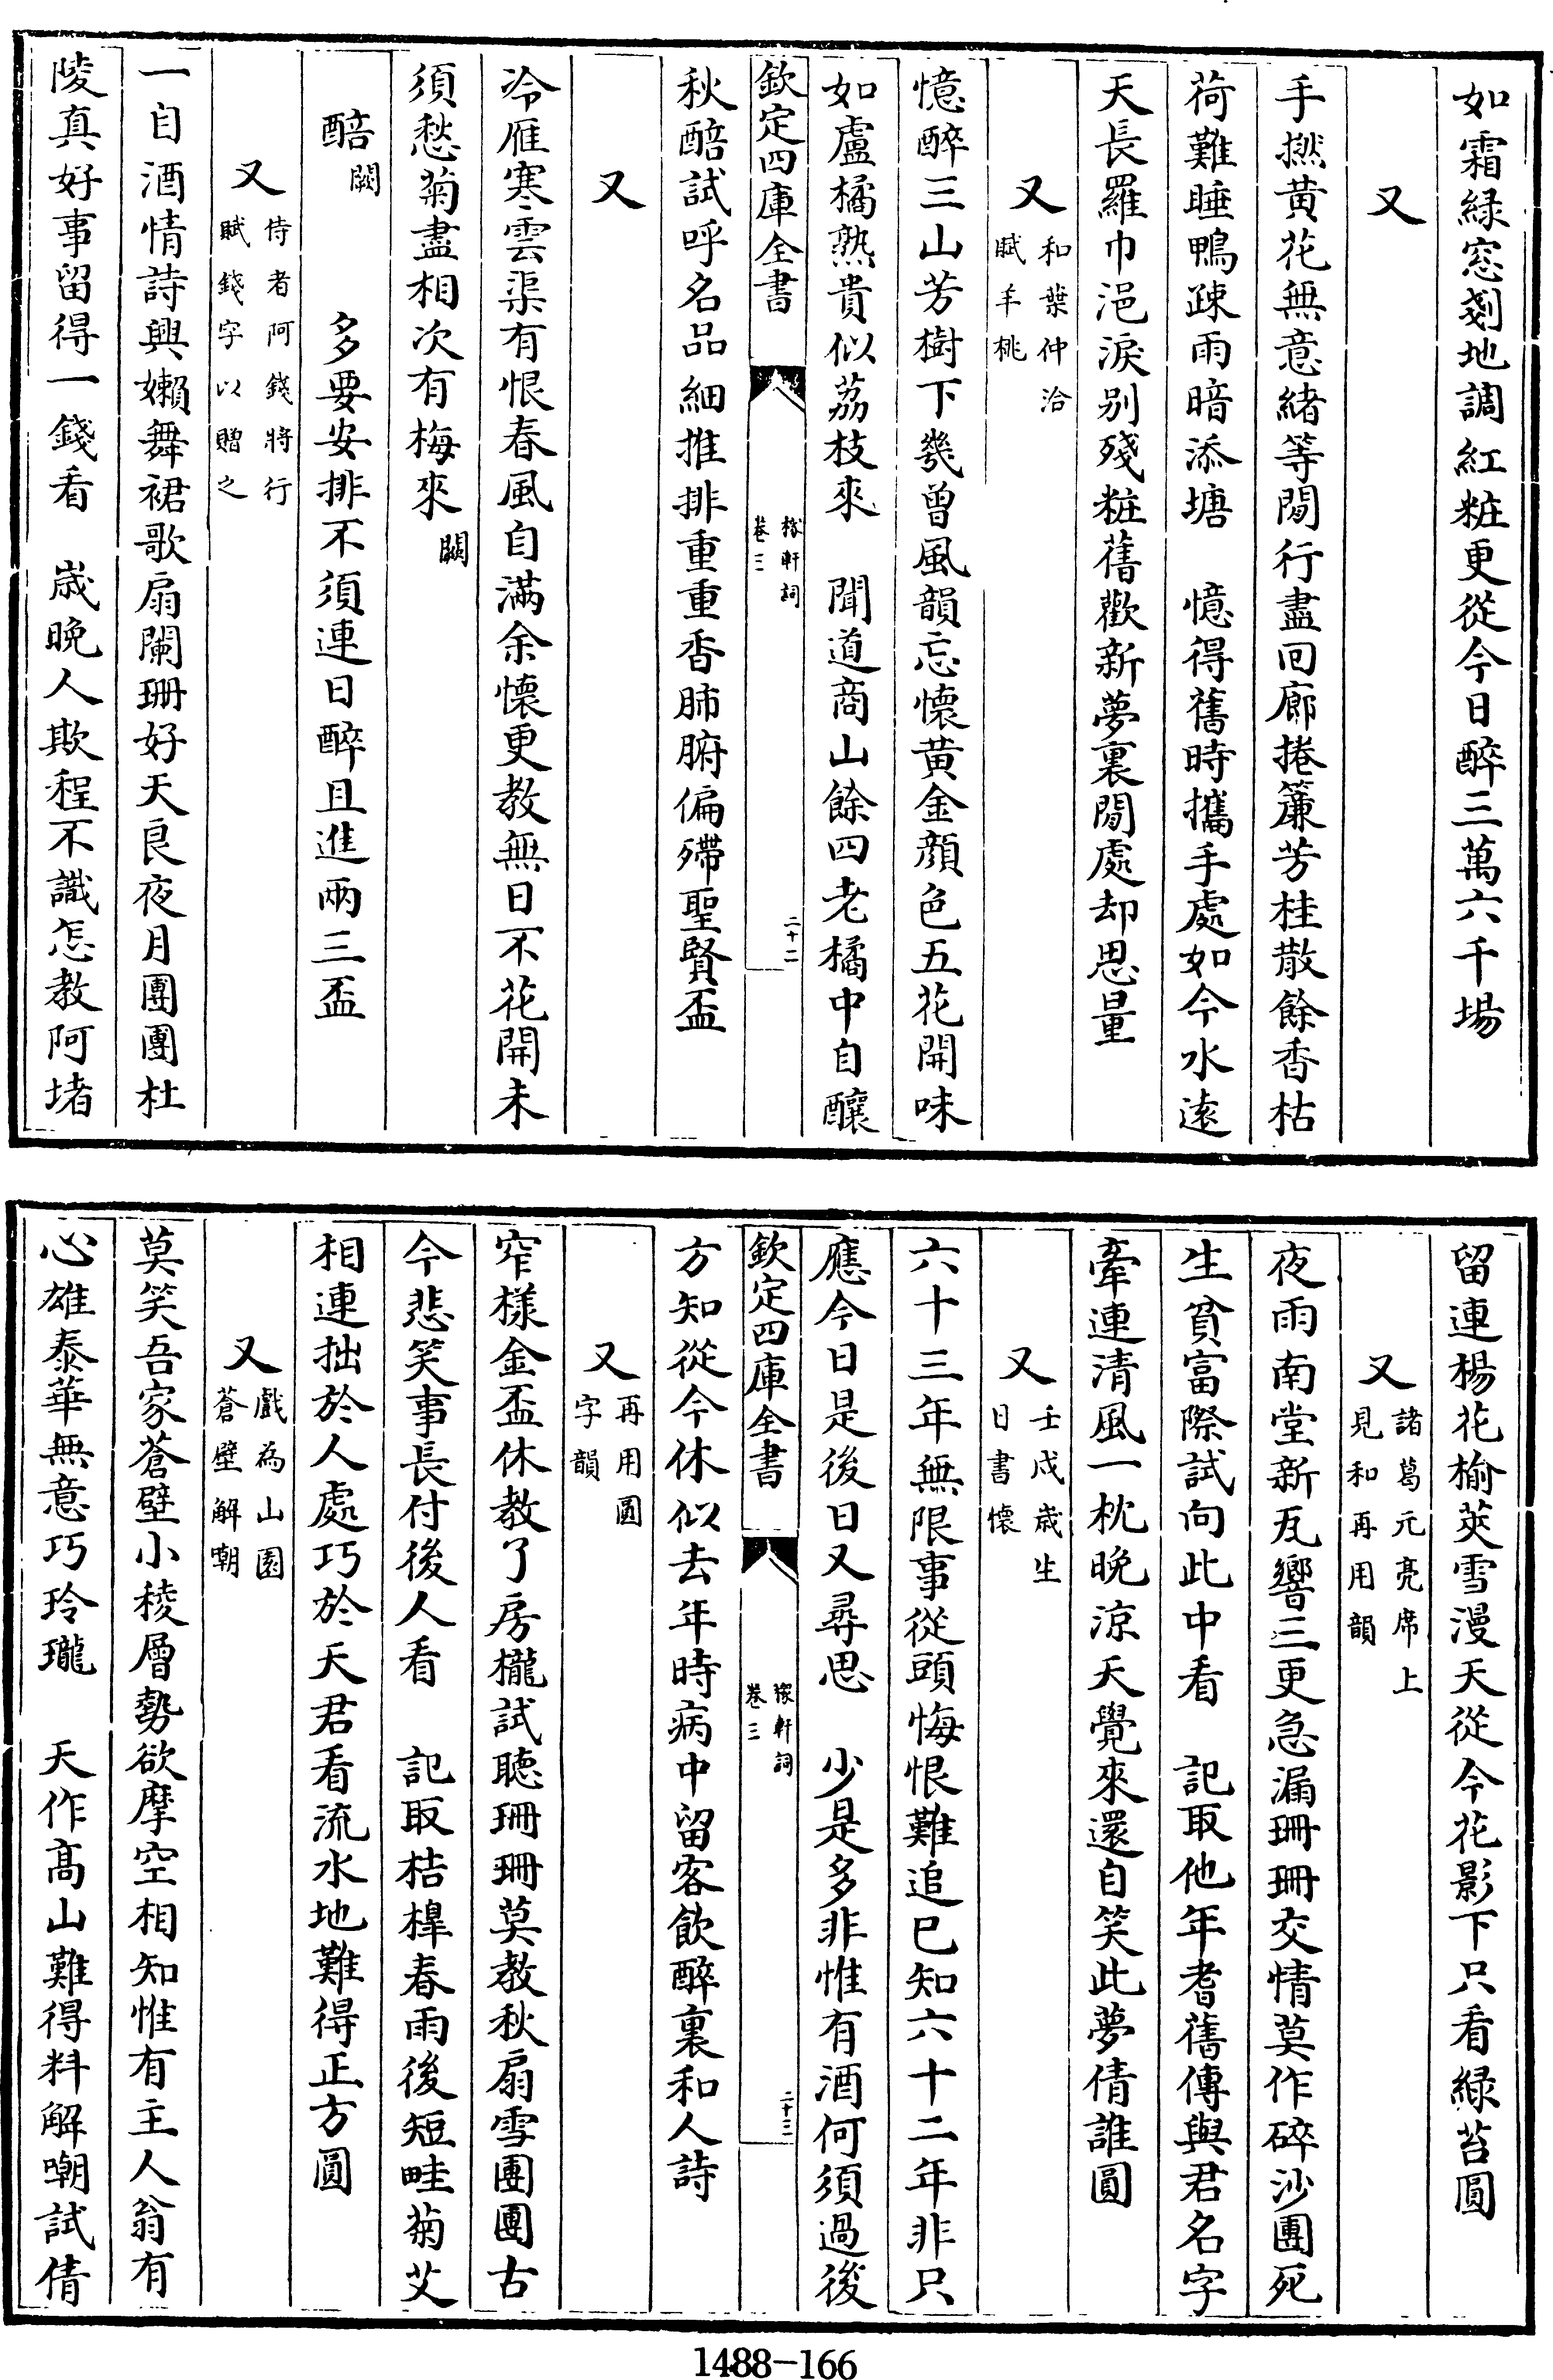 如霜緑窓剗地調紅粧更從今日醉三萬六千場
又
手撚黄花無意緒等閒行盡回廊捲簾芳桂散餘香枯
荷難睡鴨疎雨暗添塘　憶得舊時攜手處如今水逺
天長羅巾浥淚别殘粧舊歡新夢裏閒處却思量
又和葉仲洽
賦羊桃
憶醉三山芳樹下幾曾風韻忘懷黄金顔色五花開味
如盧橘熟貴似荔枝來　聞道商山餘四老橘中自釀
欽定四庫全書
稼軒詞
卷三
二十二
秋醅試呼名品細推排重重香肺腑偏殢聖賢盃
又
冷雁寒雲渠有恨春風自滿余懷更教無日不花開未
須愁菊盡相次有梅來闕
醅闕　　多要安排不須連日醉且進兩三盃
又侍者阿錢將行
賦錢字以贈之
一自酒情詩興嬾舞裙歌扇闌珊好天良夜月團團杜
陵真好事留得一錢看　歳晩人欺程不識怎教阿堵
留連楊花榆莢雪漫天從今花影下只看緑苔圓
又諸葛元亮席上
見和再用韻
夜雨南堂新瓦響三更急漏珊珊交情莫作碎沙團死
生貧富際試向此中看　記取他年耆舊傳與君名字
牽連清風一枕晩涼天覺來還自笑此夢倩誰圓
又壬戌歳生
日書懷
六十三年無限事從頭悔恨難追已知六十二年非只
應今日是後日又尋思　少是多非惟有酒何須過後
欽定四庫全書
稼軒詞
卷三
二十三
方知從今休似去年時病中留客飲醉裏和人詩
又再用圓
字韻
窄様金盃休教了房櫳試聽珊珊莫教秋扇雪團團古
今悲笑事長付後人看　記取桔槔春雨後短畦菊艾
相連拙於人處巧於天君看流水地難得正方圓
又戲為山園
蒼壁解嘲
莫笑吾家蒼壁小稜層勢欲摩空相知惟有主人翁有
心雄泰華無意巧玲瓏　天作髙山難得料解嘲試倩
1488-166